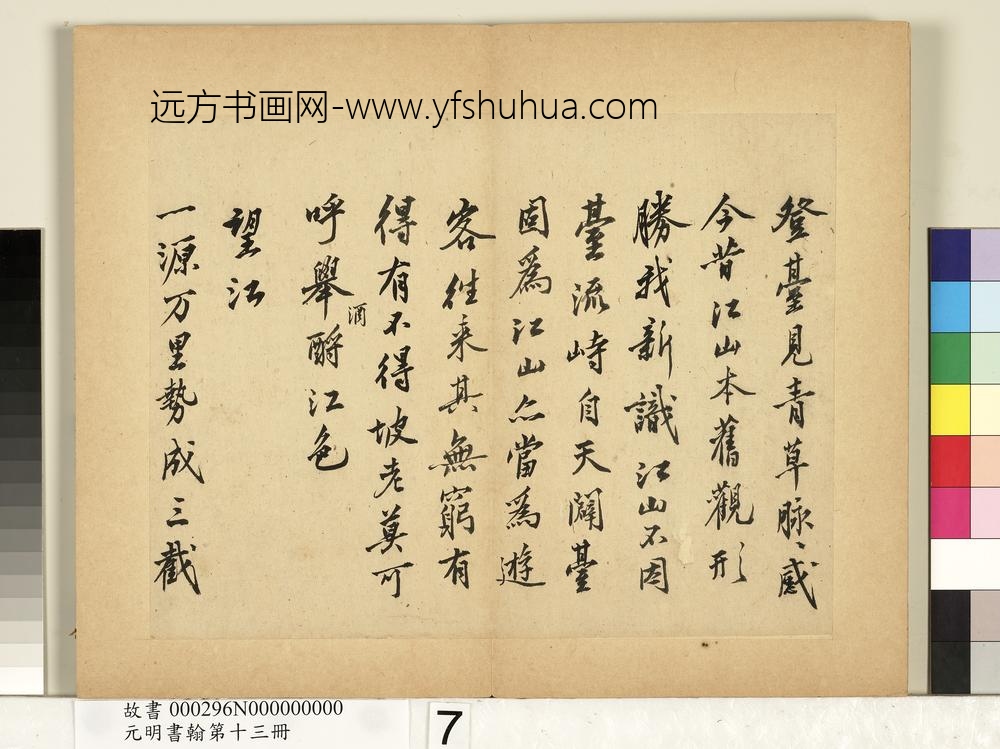 远方书画网-www.yfshuhua.com
登臺見青草脉〻感
今昔江山本舊觀形
勝我新識江山不因
臺流峙自天闢臺
固爲江山亦當爲遊
客往来其無窮有
得有不得坡老莫可
呼舉酹江色
酒
望江
一源万里勢成三截
故書 000296N000000000
元明書翰第十三冊
7